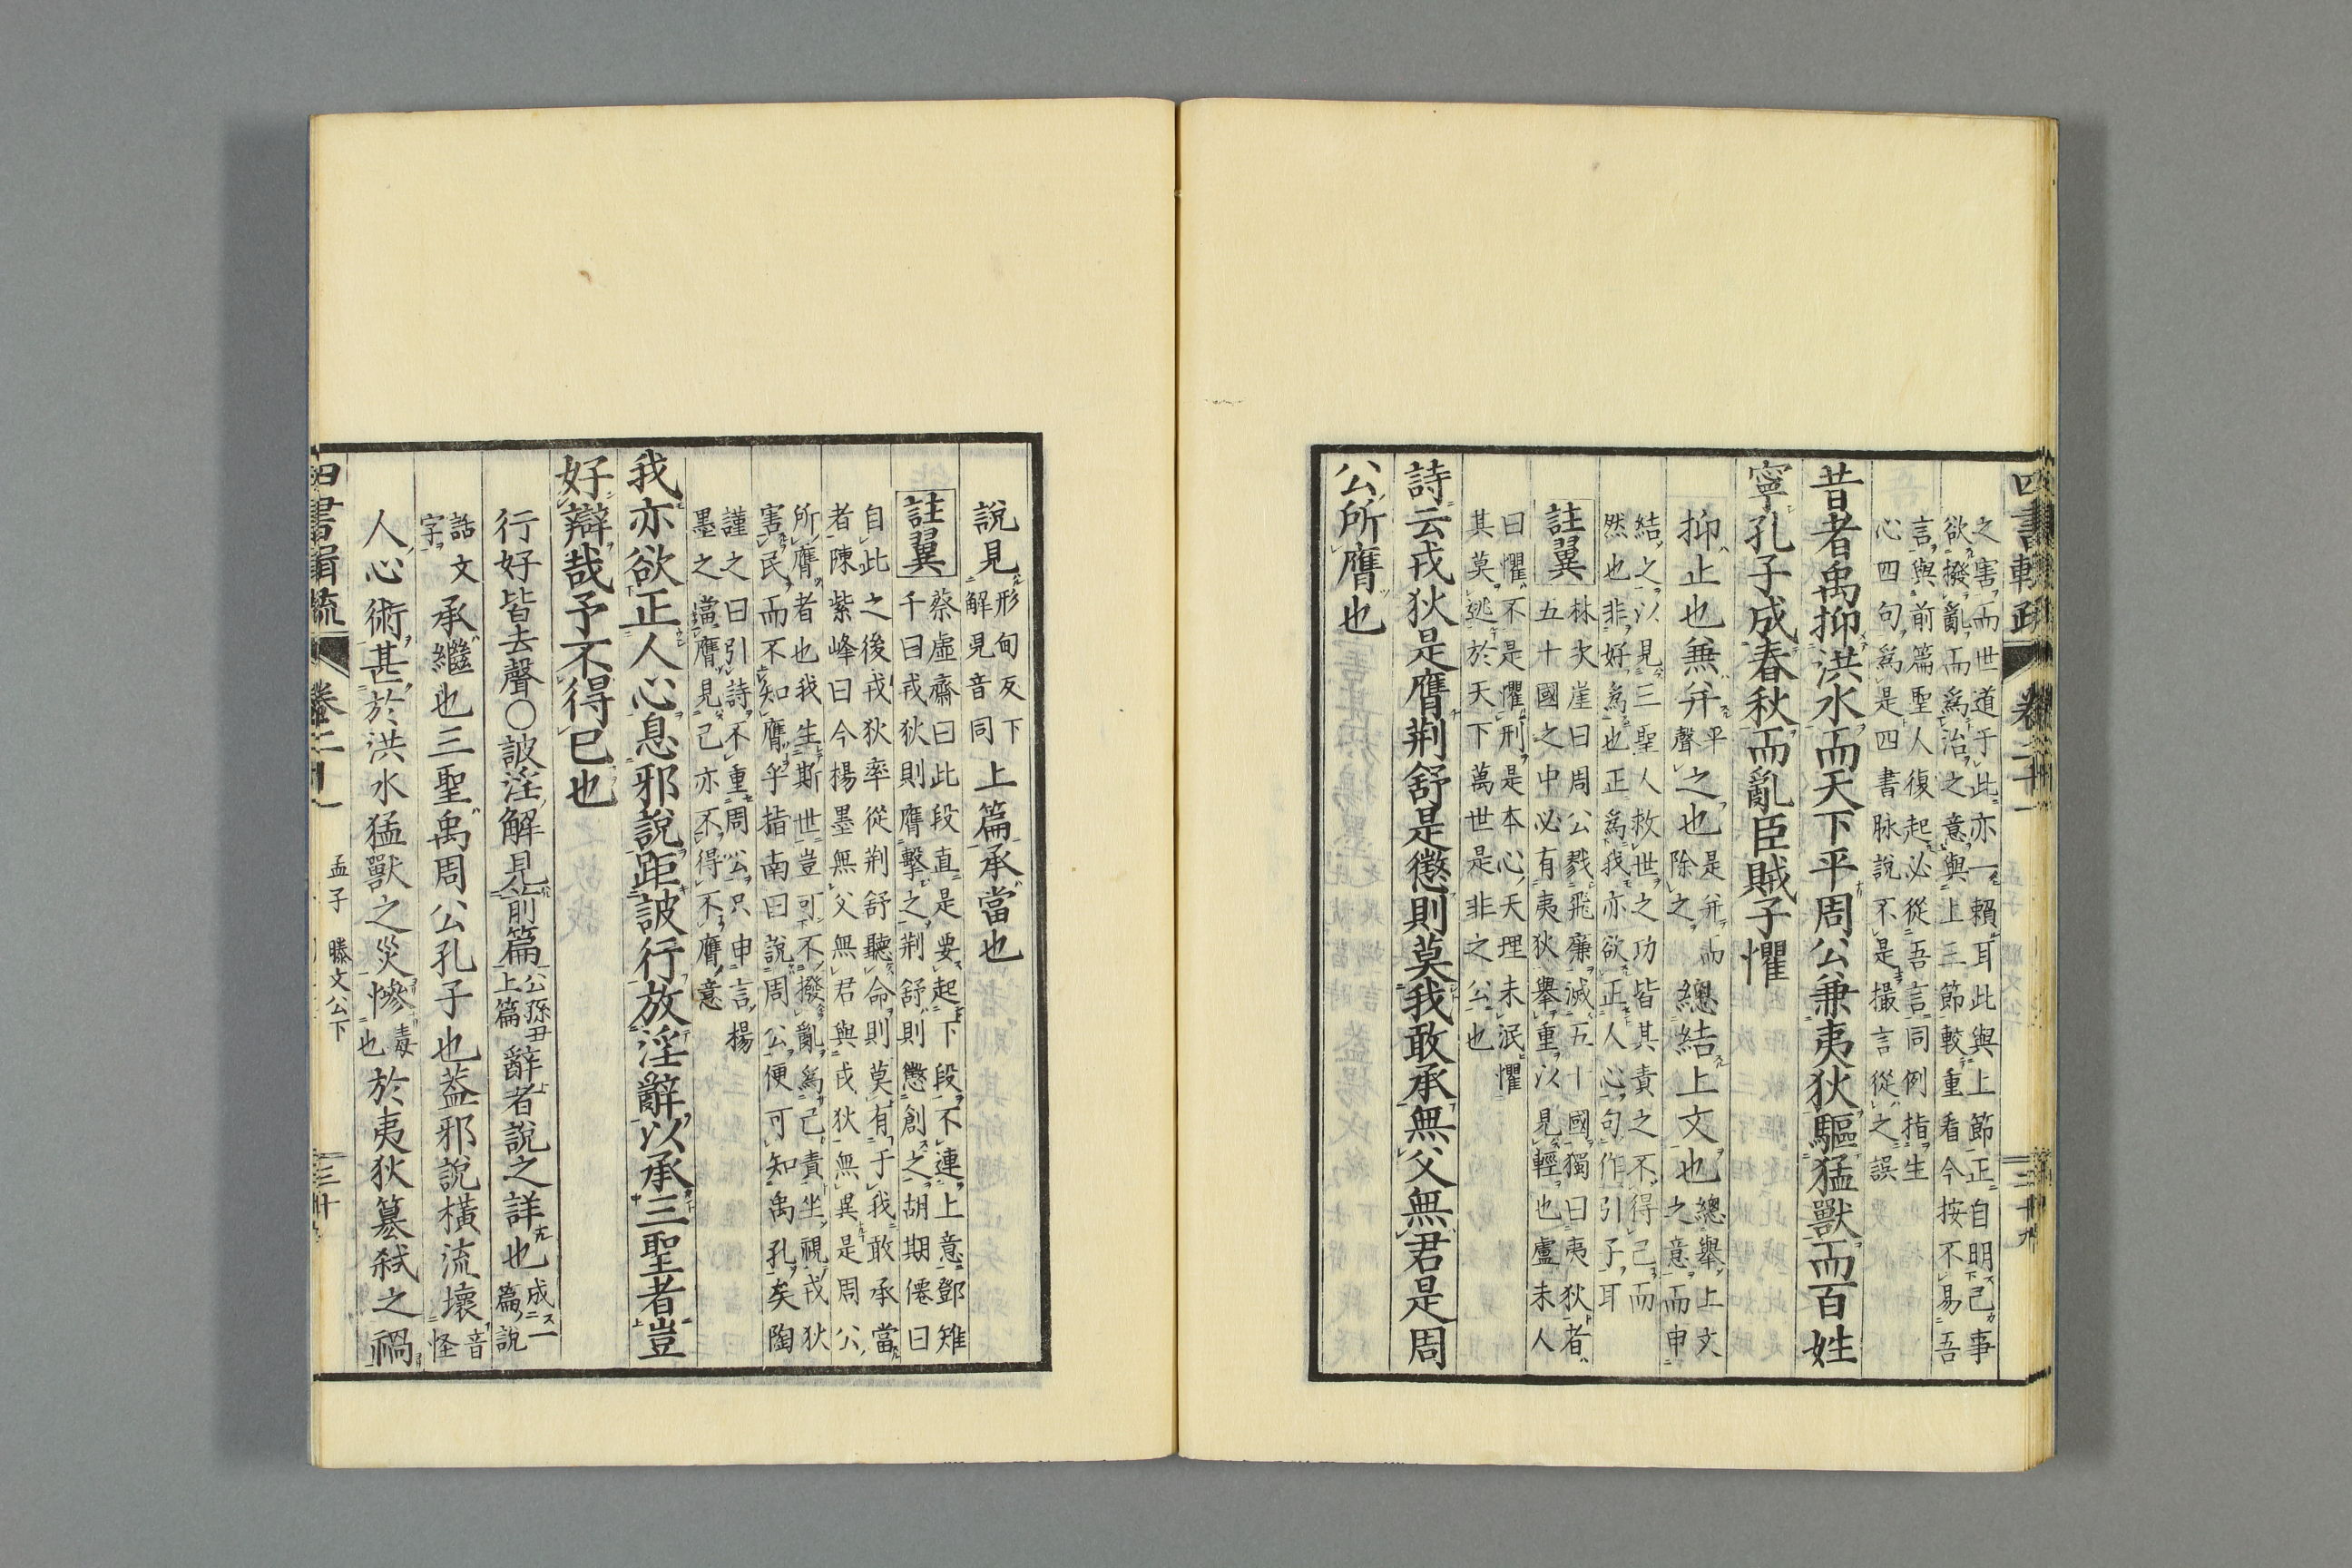 四書輯疏
卷二十一
三十九
之害而世道于此亦一賴耳此與上節正自明己事
欲撥亂而爲治之意與上三節較重看今按不易吾
言與前篇聖人復起必從吾言同例指生
心四句爲是四書脉說不是撮言從之誤
昔者禹抑洪水而天下平周公兼夷狄驅猛獸而百姓
寧孔子成春秋而亂臣賊子懼
抑止也兼幷
平聲
之也
是幷而
除之
總結上文也
總舉上文
之意而申
結之以見三聖人救世之功皆其責之不得已而
然也非好爲也正爲我亦欲正人心句作引子耳
註翼
林次崖曰周公戮飛廉滅五十國獨曰夷狄者
五十國之中必有夷狄舉重以見輕也盧未人
曰懼不是懼刑是本心天理未泯懼
其莫逃於天下萬世是非之公也
詩云戎狄是膺荆舒是懲則莫我敢承無父無君是周
公所膺也
說見
形甸反下
解見音同
上篇承當也
註翼
蔡虛齋曰此段直是要起下段不連上意鄧雉
千曰戎狄則膺擊之荆舒則懲創之胡期僊曰
自此之後戎狄率從荆舒聽命則莫有于我敢承當
者陳紫峰曰今楊墨無父無君與戎狄無異是周公
所膺者也我生斯世豈可不撥亂爲己責坐視戎狄
害民而不知膺乎指南曰說周公便可知禹孔矣陶
謹之曰引詩不重周公只申言楊
墨之當膺見己亦不得不膺意
我亦欲正人心息邪說距詖行放淫辭以承三聖者豈
好辯哉予不得已也
行好皆去聲○詖淫解見前篇
公孫丑
上篇
辭者說之詳也
成一
篇說
話文
字
承繼也三聖禹周公孔子也蓋邪說橫流壞
音
怪
人心術甚於洪水猛獸之災慘
毒
也
於夷狄簒弑之禍
四書輯疏
孟子
滕文公下